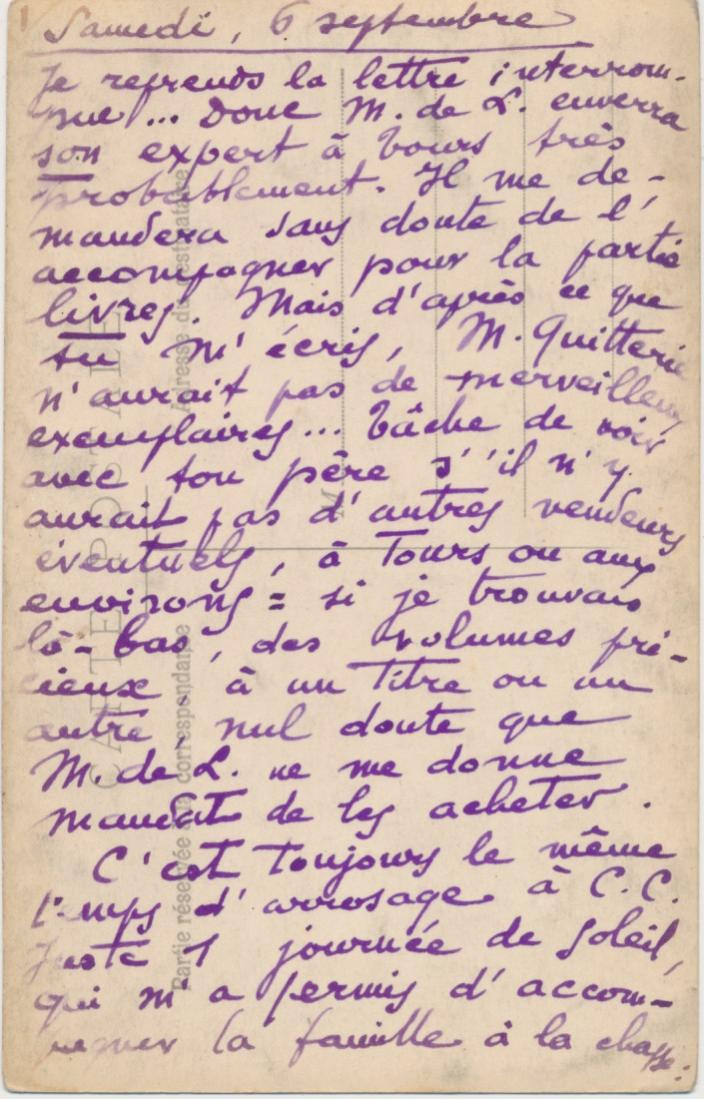 Samedi, 6 septembre
Je reprends la lettre interrom-
pue... Donc M. de L. enverra
son expert à Tours très
probablement. Il me de-
mandera sans doute de l'
accompagner pour la partie
livres. Mais d'après ce que
tu m'écris, M. Quitterie
n'aurait pas de merveilleux
exemplaires... Tâche de voir
avec ton père s'il n'y
aurait pas d'autres vendeurs
éventuels, à Tours ou aux
environs = si je trouvais
là-bas, des volumes pré-
cieux à un titre ou un
autre, nul doute que
M. de L. ne me donne
mandat de les acheter.
C'est toujours le même
temps d'arrosage à C.C.
Juste 1 journée de soleil,
qui m'a permis d'accom-
pagner la famille à la chasse:
CARTE POSTALE
Partie réservée à la correspondance
Adresse du destinataire
M